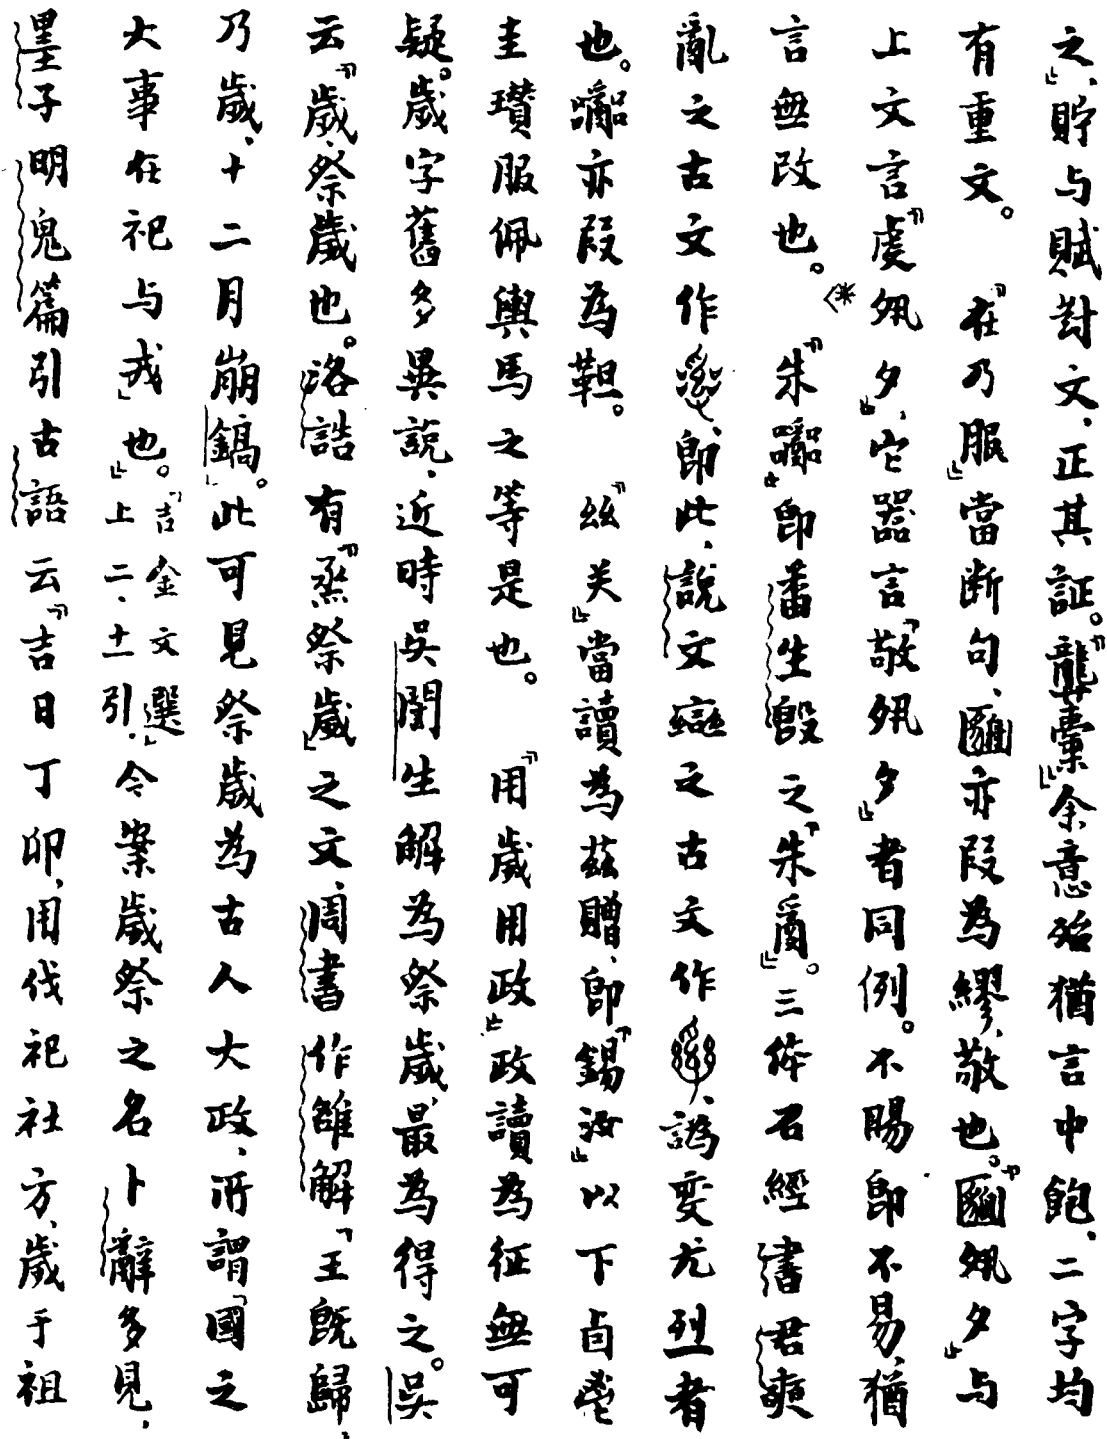 之」，貯与賦對文，正其証。「龏橐」余意殆猶言中飽，二字均
有重文。　「在乃服」當断句，𨞪亦叚為繆，敬也。「𨞪夙夕」与
上文言「虔夙夕」，它器言「敬夙夕」者同例。不賜即不易，猶
言無改也。　「朱𠭯」即番生𣪘之「朱𤔲」。三体石經書君奭
亂之古文作，即此，說文䜌之古文作，譌變尤烈者
也。亦叚為靼。　「玆关」當讀為茲贈，即「錫汝」以下卣鬯
圭瓚服佩輿馬之等是也。　「用歲用政」政讀為征無可
疑。歲字舊多異說，近時吳闓生解為祭歲，最為得之。吳
云「歲，祭歲也。洛誥有『烝祭歲』之文，周書作雒解『王旣歸，
乃歲，十二月崩鎬』。此可見祭歲為古人大政，所謂『國之
大事在祀与戎』也。」「吉金文選」上二、十一引，今案歲祭之名卜辭多見，
墨子明鬼篇引古語云「吉日丁卯，用伐祀社方，歲于祖